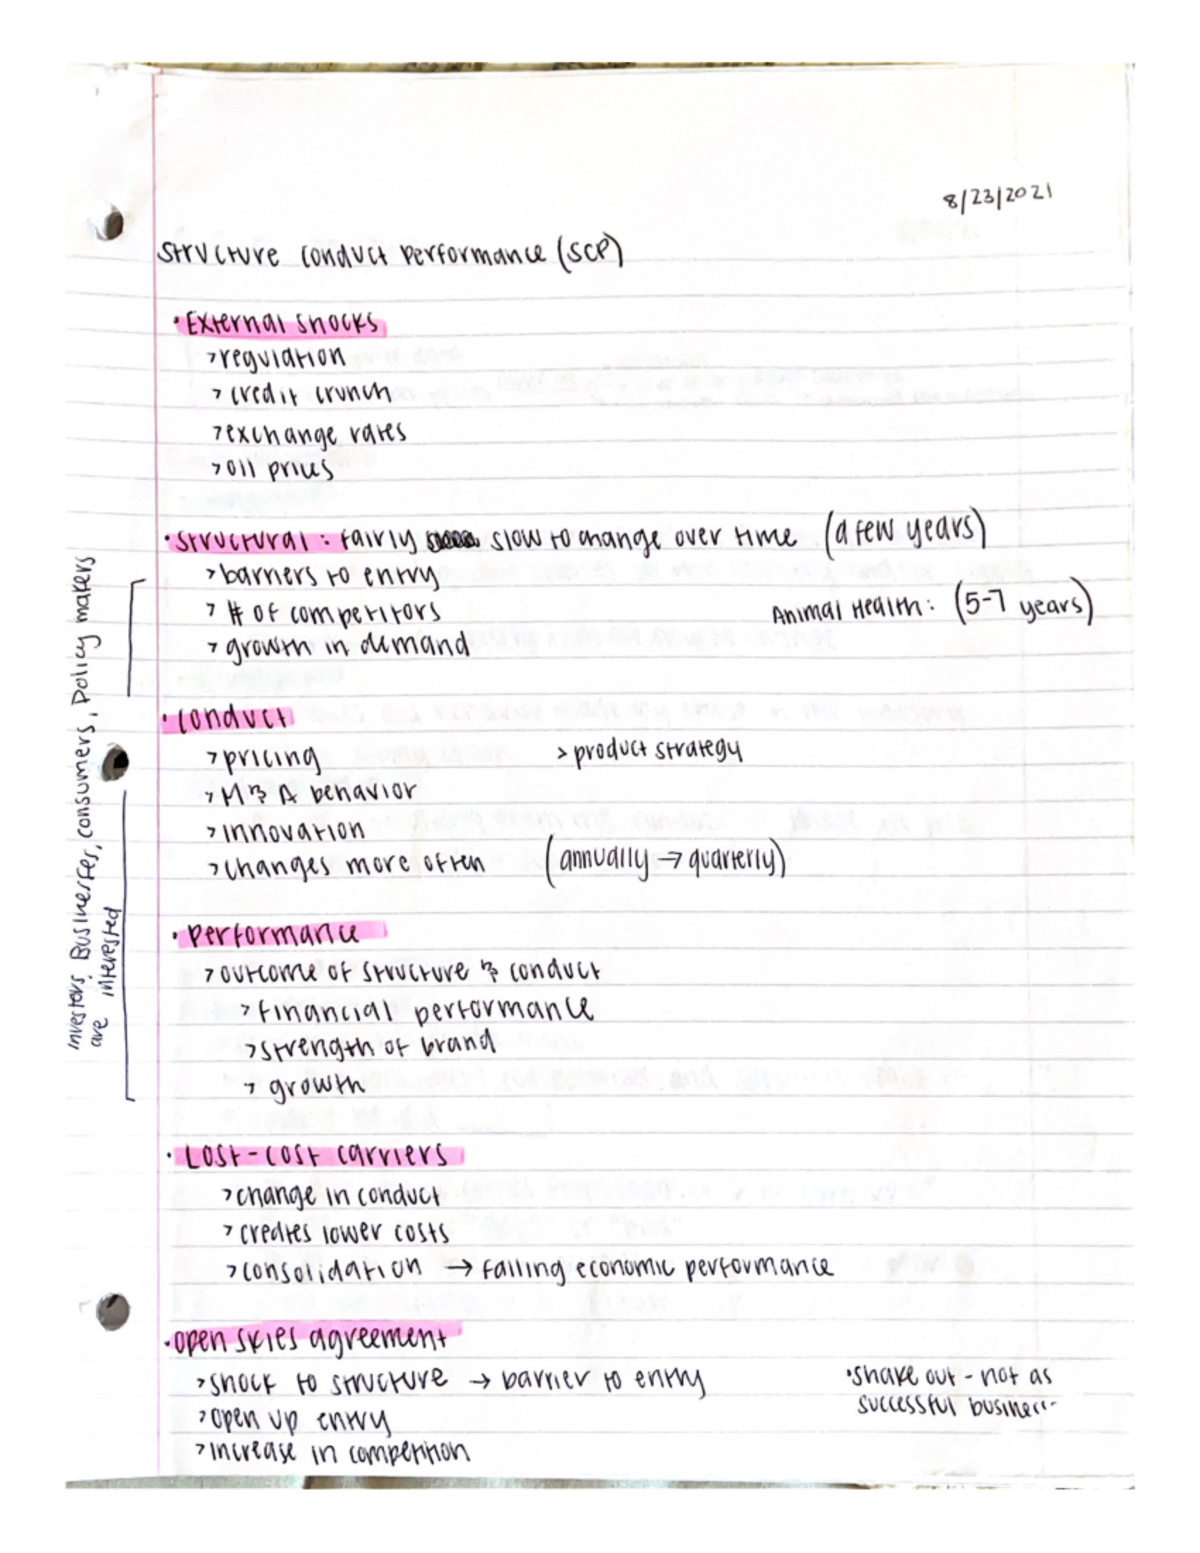 8/23/2021
Structure Conduct Performance (SCP)
• External Shocks
> regulation
> credit crunch
> exchange rates
> oil prices
• Structural : fairly slow to change over time (a few years)
> barriers to entry
> # of competitors
Animal Health : (5-7 years)
> growth in demand
• Conduct
> pricing > product strategy
> M & A behavior
> innovation
> changes more often (annually → quarterly)
• Performance
> outcome of structure & conduct
> financial performance
> strength of brand
> growth
Investors, Businesses, consumers, Policy makers
are interested
• Lost-cost carriers
> change in conduct
> creates lower costs
> consolidation → falling economic performance
• Open skies agreement
> shock to structure → barrier to entry
> open up entry
> increase in competition
• shake out - not as
successful business